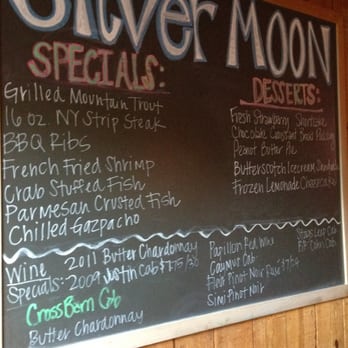 Silver MOON
SPECIALS:
Grilled Mountain Trout
16 oz. NY Strip Steak
BBQ Ribs
French Fried Shrimp
Crab Stuffed Fish
Parmesan Crusted Fish
Chilled Gazpacho
DESSERTS:
Fresh Strawberry Shortcake
Chocolate Croissant Bread Pudding
Peanut Butter Pie
Butterscotch Icecream Sundae
Frozen Lemonade Cheesecake
Wine
Specials:
2011 Butter Chardonnay
2009 Justin Cab $
CrossBarn Cab
Butter Chardonnay
Papillon Red Wine
Caymus Cab
Pinot Noir Rosé
Simi Pinot Noir
Stags Leap Cab
Cakin Cab